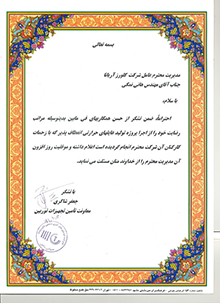 بسمه تعالی
مدیریت محترم عامل شرکت کاوورز آریانا
جناب آقای مهندس هاشمی نسکی
با سلام،
احتراماً، ضمن تشکر از حسن همکاریهای فی مابین بدینوسیله مراتب
رضایت خود را از اجرا پروژه تولید عایقهای حرارتی انعطاف پذیر که با زحمات
کارکنان آن شرکت محترم انجام گردیده است اعلام داشته و موفقیت روز افزون
آن مدیریت محترم را از خداوند منان مسئلت می نماید.
با تشکر
جعفر شاکری
معاونت تامین تجهیزات توربین